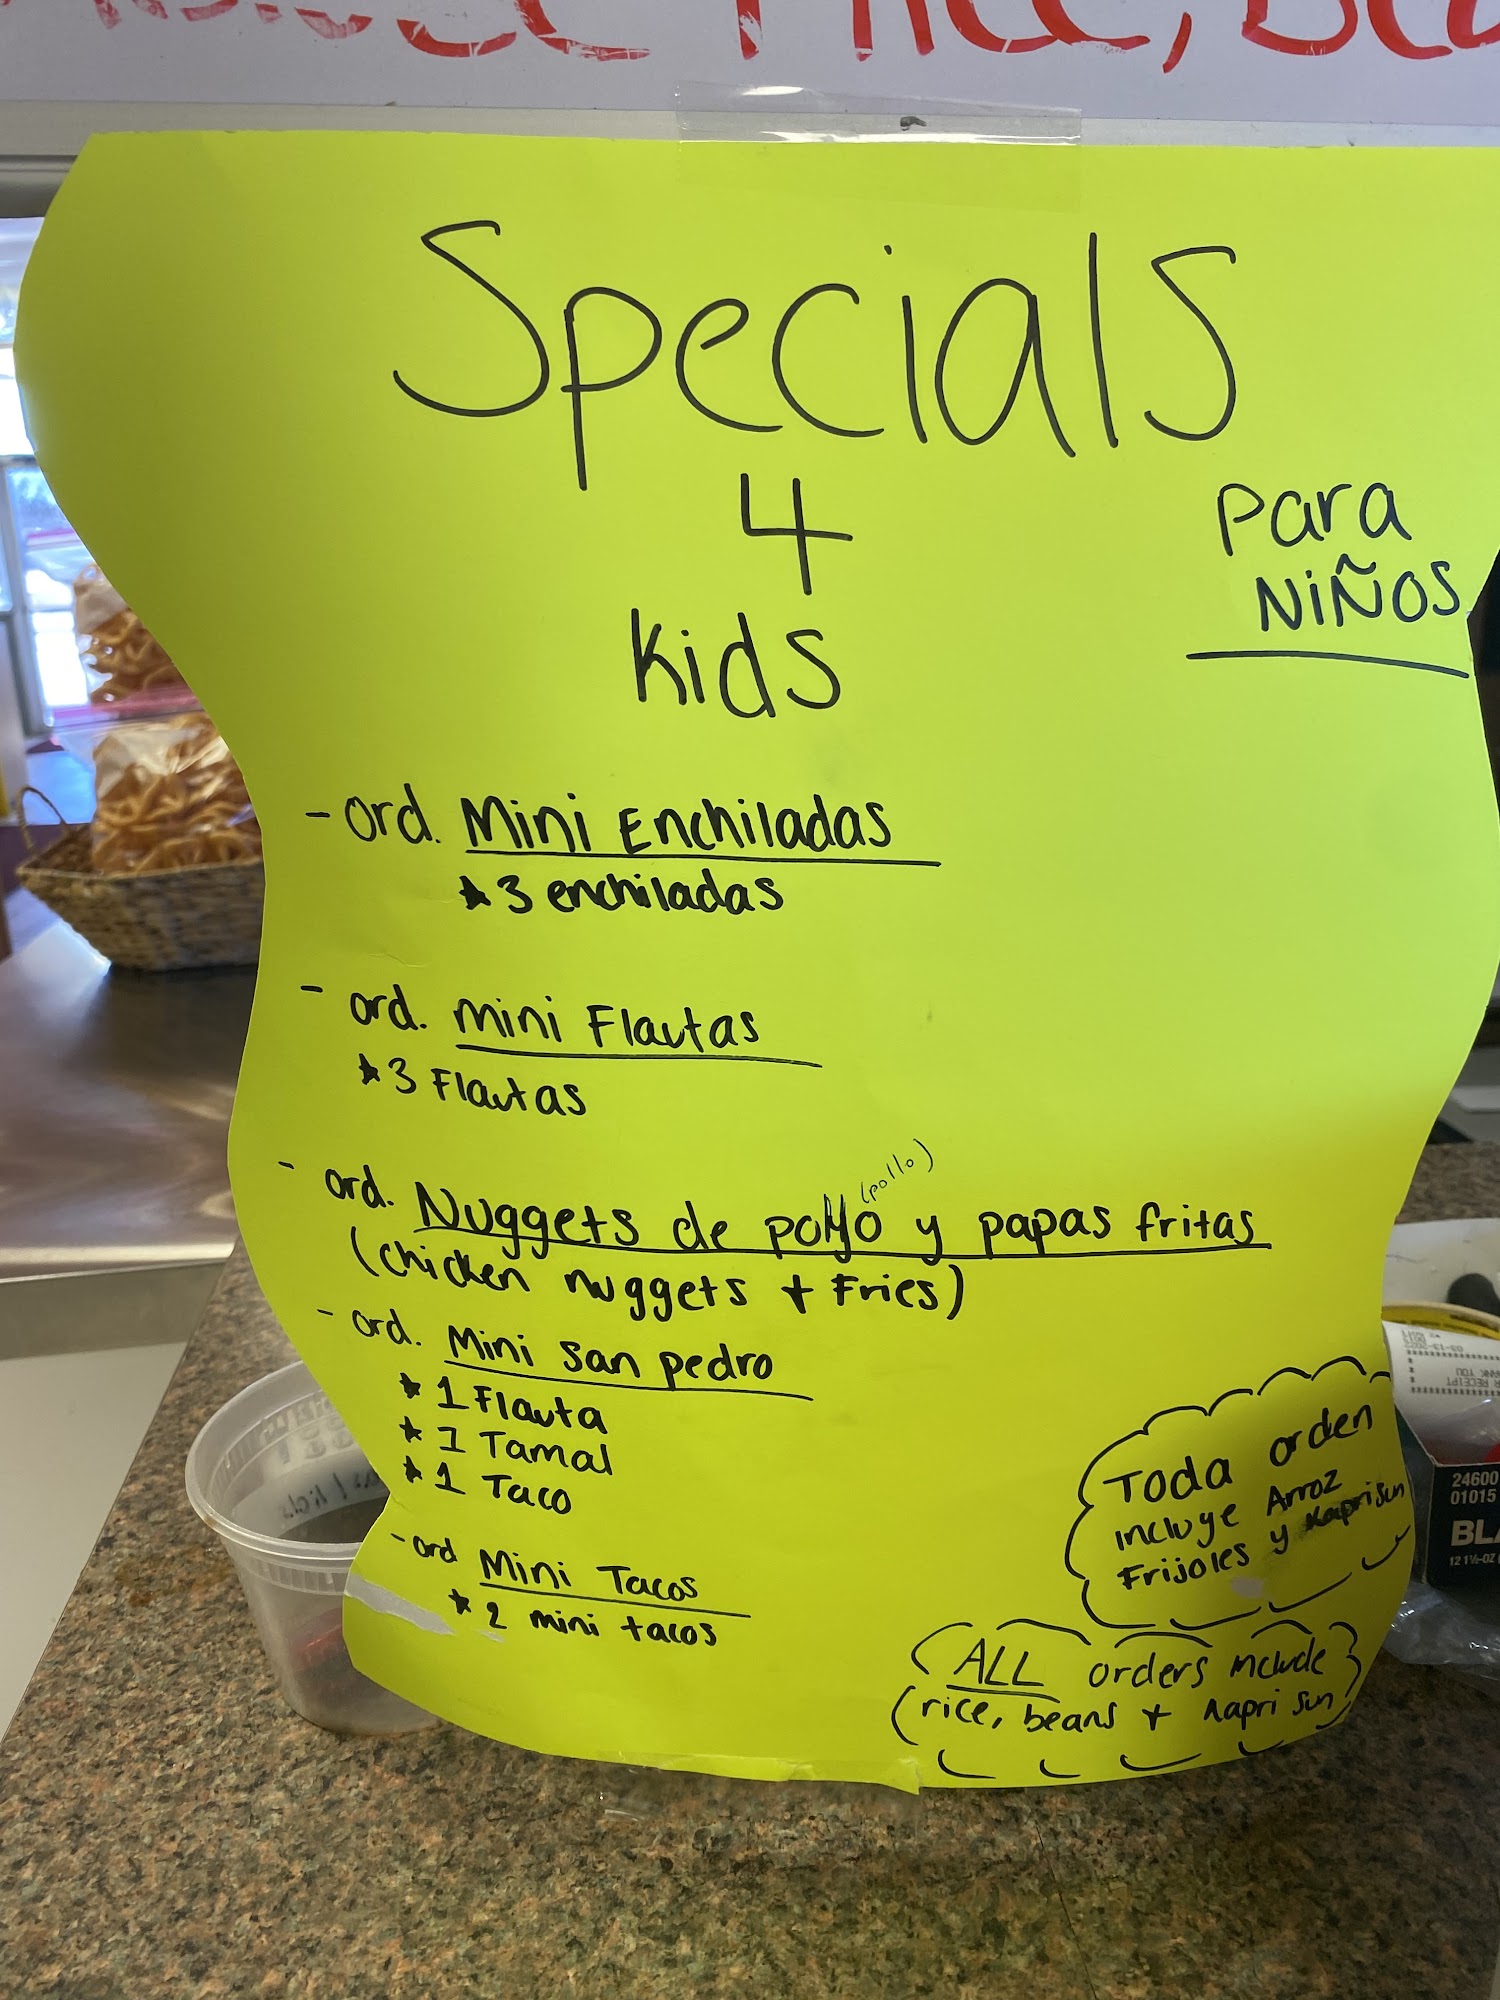 Specials
4
Kids
Para
NIÑOS
- ord. Mini Enchiladas
★ 3 enchiladas
- ord. mini Flautas
★ 3 Flautas
- ord. Nuggets de pollo (pollo) y papas fritas
(chicken nuggets + Fries)
- ord. Mini San pedro
★ 1 Flauta
★ 1 Tamal
★ 1 Taco
- ord Mini Tacos
★ 2 mini tacos
Toda orden
incluye Arroz
Frijoles y Kapri sun
ALL orders include
rice, beans + Kapri sun
24600
01015
03-13-2022
RECEIPT
YOU